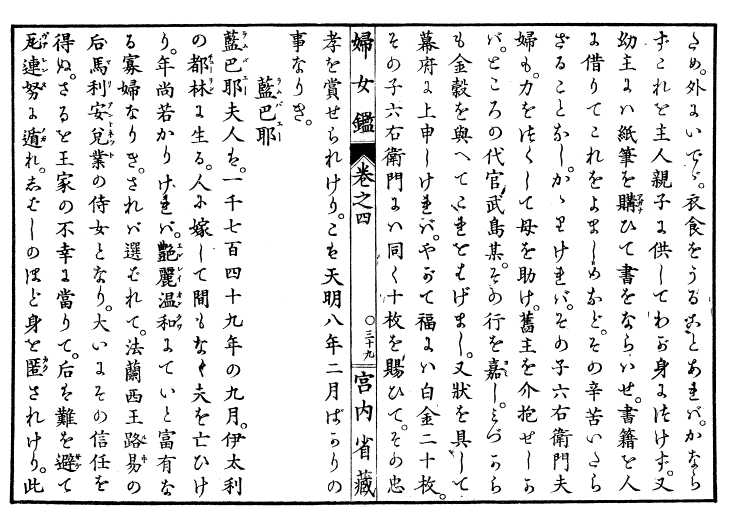 ため。外にいでゝ。衣食をうることあれバ。かなら
ずこれを主人親子に供してわが身につけず。又
幼主にハ紙筆を購ひて書をならハせ。書籍を人
に借りてこれをよましめなど。その辛苦いたら
ざることなし。かゝりけれバ。その子六右衛門夫
婦も。力をつくして母を助け。舊主を介抱せしか
バ。ところの代官武島某。その行を嘉し。みづから
も金穀を與へてこれをはげまし。又狀を具して
幕府に上申しけれバ。やがて福にハ白金二十枚。
その子六右衛門にハ同く十枚を賜ひて。その忠
婦女鑑 卷之四 ○三十九 宮内省藏
孝を賞せられけり。こは天明八年二月ばかりの
事なりき。
藍巴耶
藍巴耶夫人は。一千七百四十九年の九月。伊太利
の都林に生る。人に嫁して間もなく夫を亡ひけ
り。年尚若かりけれバ。艶麗温和にていと富有な
る寡婦なりき。されバ選ばれて。法蘭西王路易の
后馬利安兌業の侍女となり。大いにその信任を
得ぬ。さるを王家の不幸に當りて。后も難を避て
疋連努に遁れ。しばしのほど身を匿されけり。此